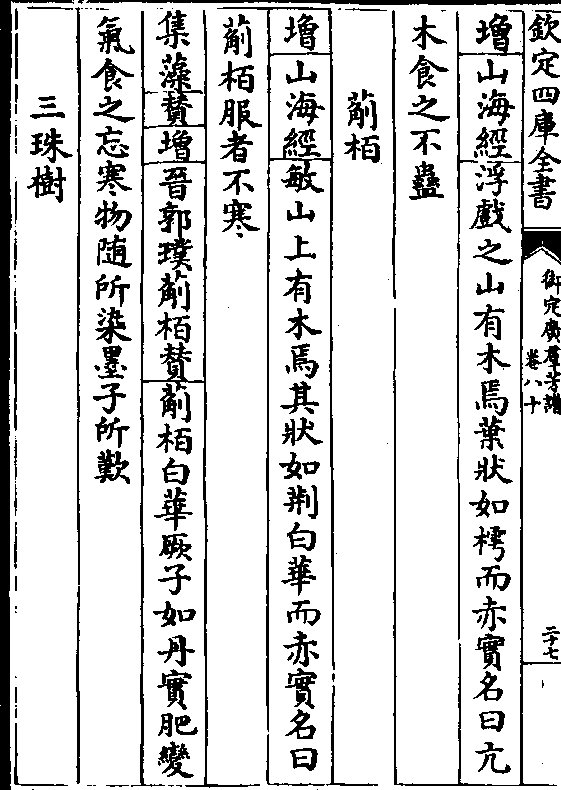 欽定四庫全書
御定廣羣芳譜
卷八十
二十七
增山海經浮戲之山有木焉葉狀如樗而赤實名曰亢
木食之不蠱
葪栢
增山海經敏山上有木焉其狀如荆白華而赤實名曰
葪栢服者不寒
集藻賛增晉郭璞葪栢賛葪栢白華厥子如丹實肥變
氣食之忘寒物隨所染墨子所歎
三珠樹